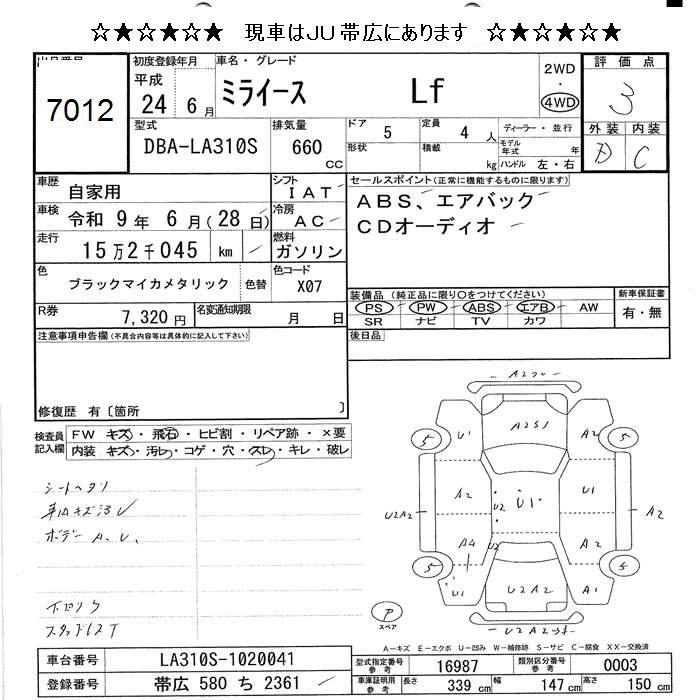 ☆★☆★☆★　現車はJU帯広にあります　☆★☆★☆★
7012
初度登録年月 車名・グレード 評価点
平成 24 6月 ミライース Lf 2WD ・ 4WD 3
型式 排気量 ドア 5 定員 4人 ディーラー・並行 外装 内装
DBA-LA310S 660 CC 形状 積載 kg モデル年式 年 D C
ハンドル 左・右
車歴 自家用 シフト IAT セールスポイント(正常に機能するものに限ります)
車検 令和 9年 6月(28日) 冷房 AC ABS、エアバック
走行 15万2千045 km 燃料 ガソリン CDオーディオ
色 ブラックマイカメタリック 色替 色コード X07
装備品(純正品に限り○をつけてください) 新車保証書
R券 7,320円 名変通知期限 月 日 PS PW ABS エアB AW 有・無
SR ナビ TV カワ
注意事項申告欄(不具合内容等は具体的に記入して下さい) 後日品
修復歴 有〔箇所 〕
検査員記入欄 FW キズ・飛石・ヒビ割・リペア跡・×要
内装 キズ・汚レ・コゲ・穴・スレ・キレ・破レ
シートヘタリ
車内キズ汚レ
ボデー A、U、
スタッドレス T
A2
A2S1
5 U1 A2 5
A2 U1 U1
U2A2 U2 A2
A4 U2 A2
5 U1 U2A2 A1 5
P
スペア
U2A2
A-キズ E-エクボ U-凹み W-補修跡 S-サビ C-腐食 XX-交換済
車台番号 LA310S-1020041 型式指定番号 参考 16987 類別区分番号 参考 0003
登録番号 帯広 580 ち 2361 車庫証明用 参考 長さ 339 cm 幅 147 cm 高さ 150 cm